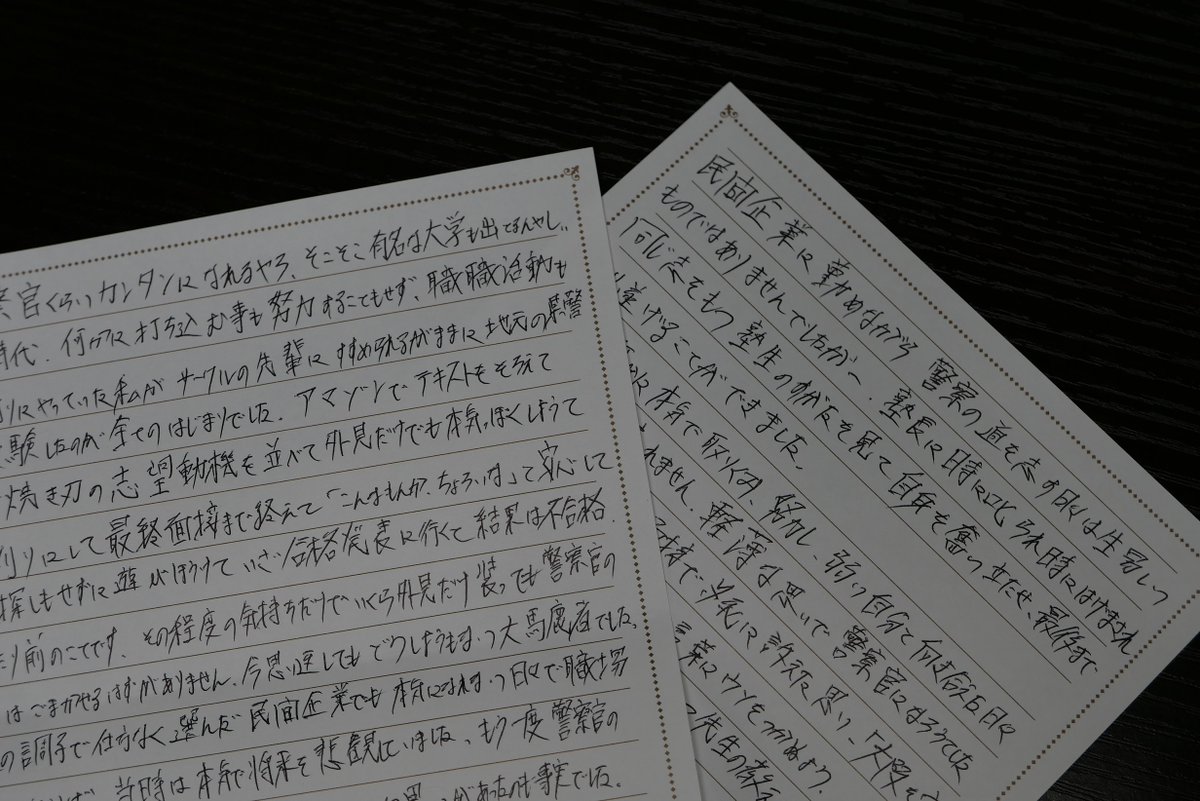 官くらいカンタンになれるやろ、そこそこ有名な大学も出てるんやし、
時代、何かに打ち込む事も努力することもせず、職職活動も
にやっていた私が サークルの先輩に すすめられるがままに 地元の県警
験したのが全てのはじまりでした。アマゾンでテキストをそろえて
焼き刃の志望動機を並べて外見だけでも本気っぽくしようて
りにして最終面接まで終えて「こんなもんか、ちょろいな」って安心して
探しもせずに遊びほうけて いざ合格発表に行くて結果は不合格
り前のことです。その程度の気持ちだけでいくら外見だけ装っても警察官の
はごまかせるはずがありません。今思い返してもどうしようもない大馬鹿者でした。
の調子で仕方なく選んだ民間企業でも本気になれない日々で職場
当時は本気で将来を悲観していました。もう一度警察官の
があったのも事実でした。
民間企業に勤めながら 警察の道を志す日々は生易しい
ものではありませんでしたが、塾長に時に叱られ時にはげまされ
同じ志をもつ塾生のかたを見て自身を奮い立たせ、最後まで
げることができました。
本気で取り組み、努力し、弱い自分と向き合った日々
れません。軽薄な思いで警察官になろうとした
先に 許えに思う、「大野
葉にウソをつかめよう
先生の教え